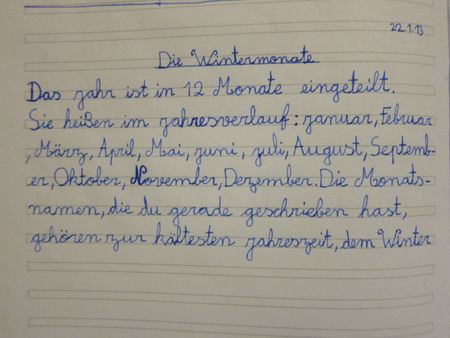 22.1.13
Die Wintermonate
Das Jahr ist in 12 Monate eingeteilt.
Sie heißen im Jahresverlauf: Januar, Februar
, März, April, Mai, Juni, Juli, August, Septemb-
er, Oktober, November, Dezember. Die Monats-
namen, die du gerade geschrieben hast,
gehören zur kältesten Jahreszeit, dem Winter